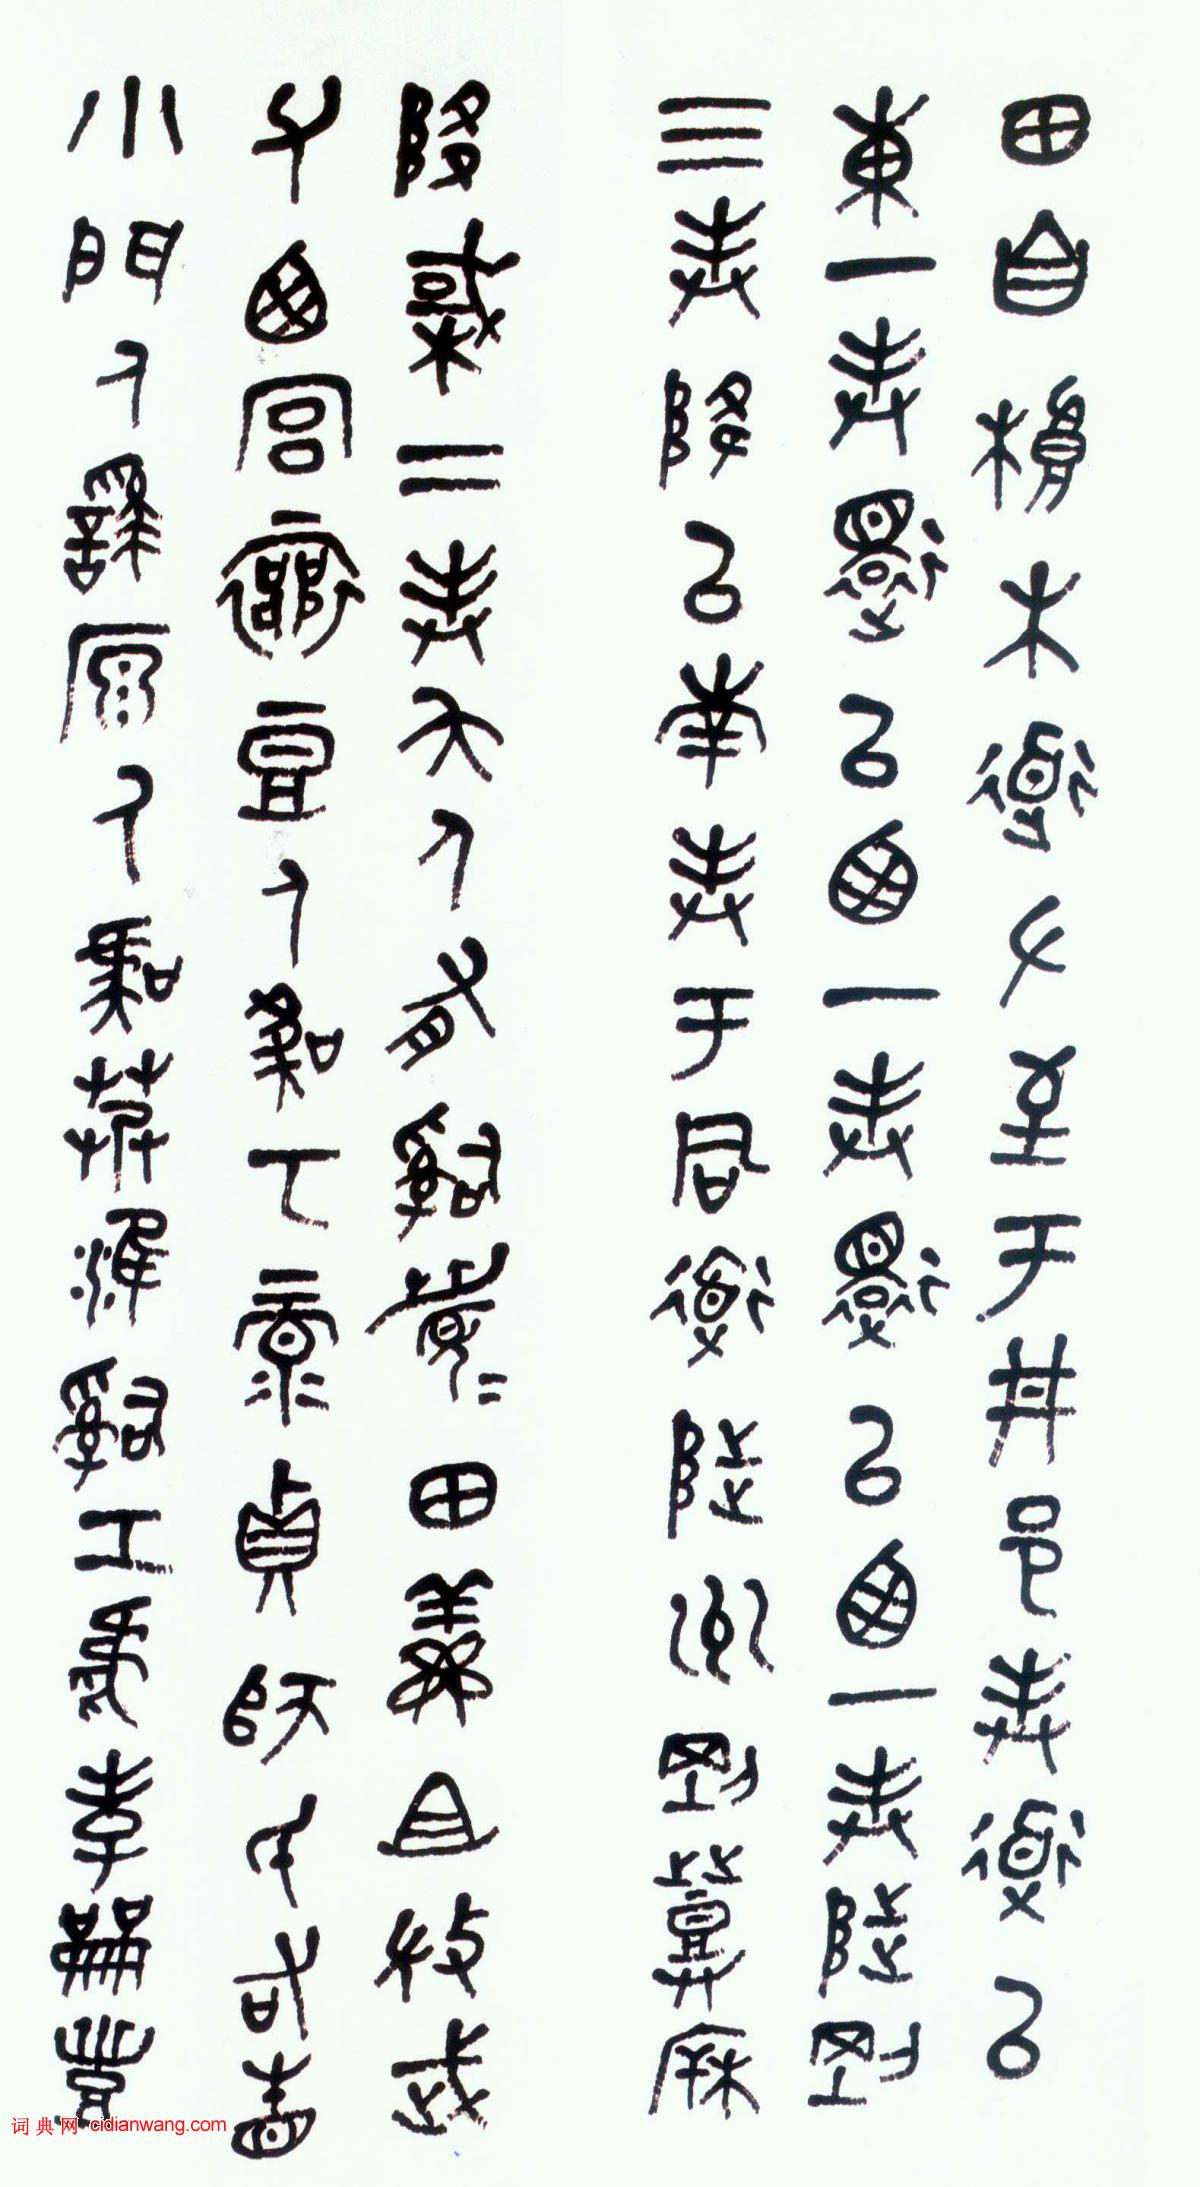 田自桹木道左至于井邑封道以
東一封還以西一封還以西一封陟剛
三封降以南封于同道陟州剛登𣏟
降棫二封夨人有𤔲眉田鮮且微武
父西宮襄豆人虞丂彔貞師氏右眚
小門人繇原人虞艿淮𤔲工虎孝龠豐
词典网 cidianwang.com